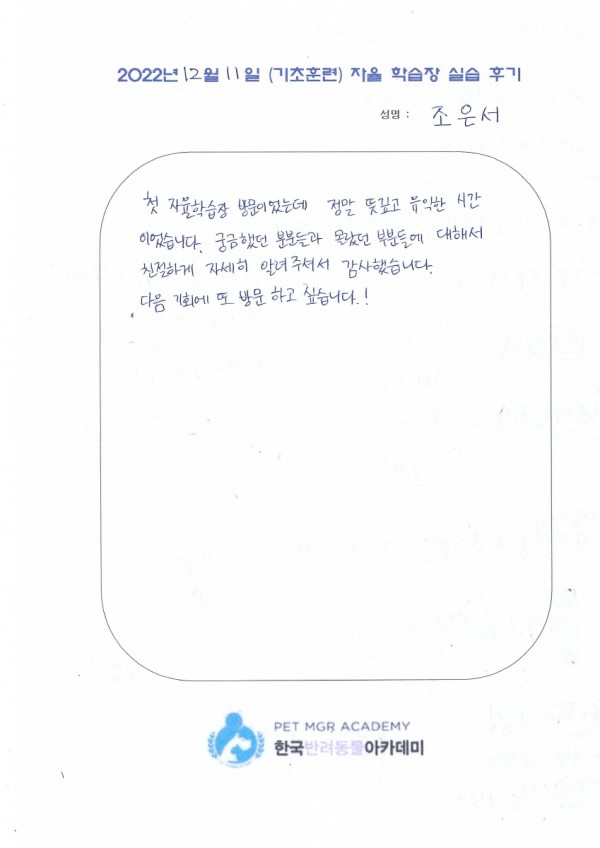 2022년 12월 11일 (기초훈련) 자율 학습장 실습 후기
성명 : 조은서
첫 자율학습장 방문이었는데 정말 뜻깊고 유익한 시간
이었습니다. 궁금했던 부분들과 몰랐던 부분들에 대해서
친절하게 자세히 알려주셔서 감사했습니다.
다음 기회에 또 방문 하고 싶습니다.!
PET MGR ACADEMY
한국반려동물아카데미